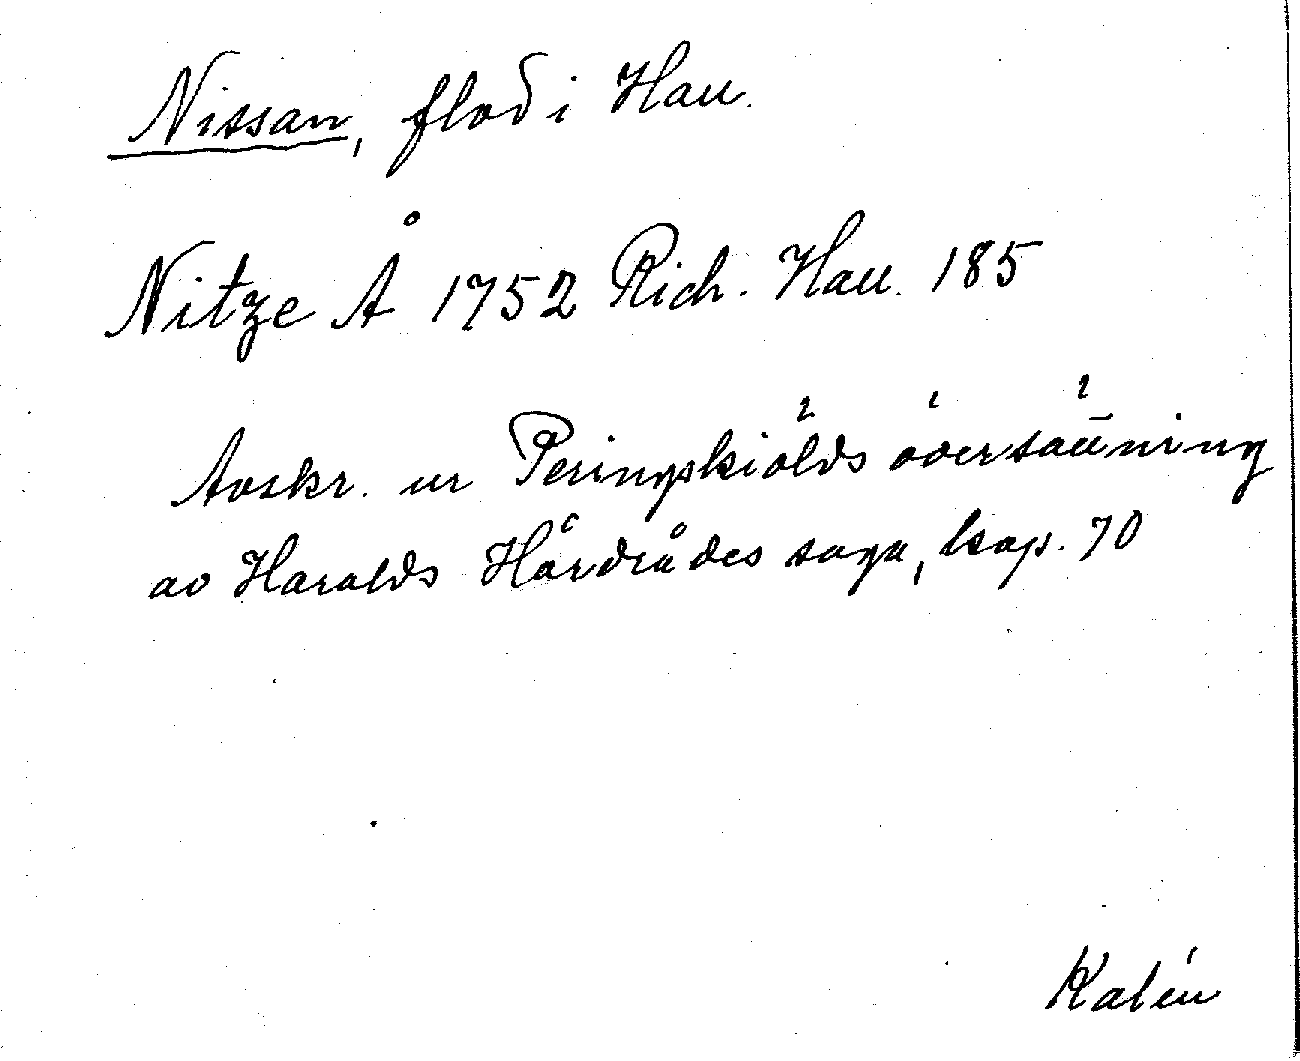 Nissan, flod i Hall.
Nitze Å 1752 Rich. Hall. 185
Avskr. ur Peringskiölds översättning
av Haralds Hårdrådes saga, kap. 70
Kalén